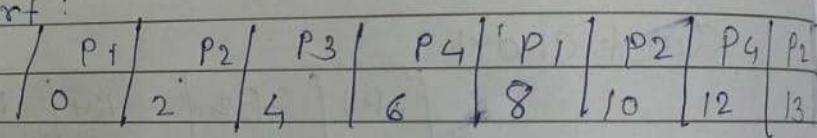 rt :
P1 P2 P3 P4 P1 P2 P4 P2
0 2 4 6 8 10 12 13